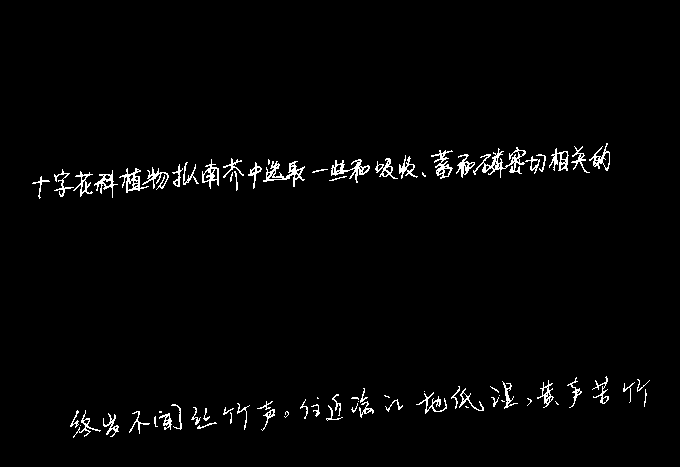 十字花科植物拟南芥中选取一些和吸收、蓄积磷密切相关的
终岁不闻丝竹声。住近湓江地低湿,黄芦苦竹